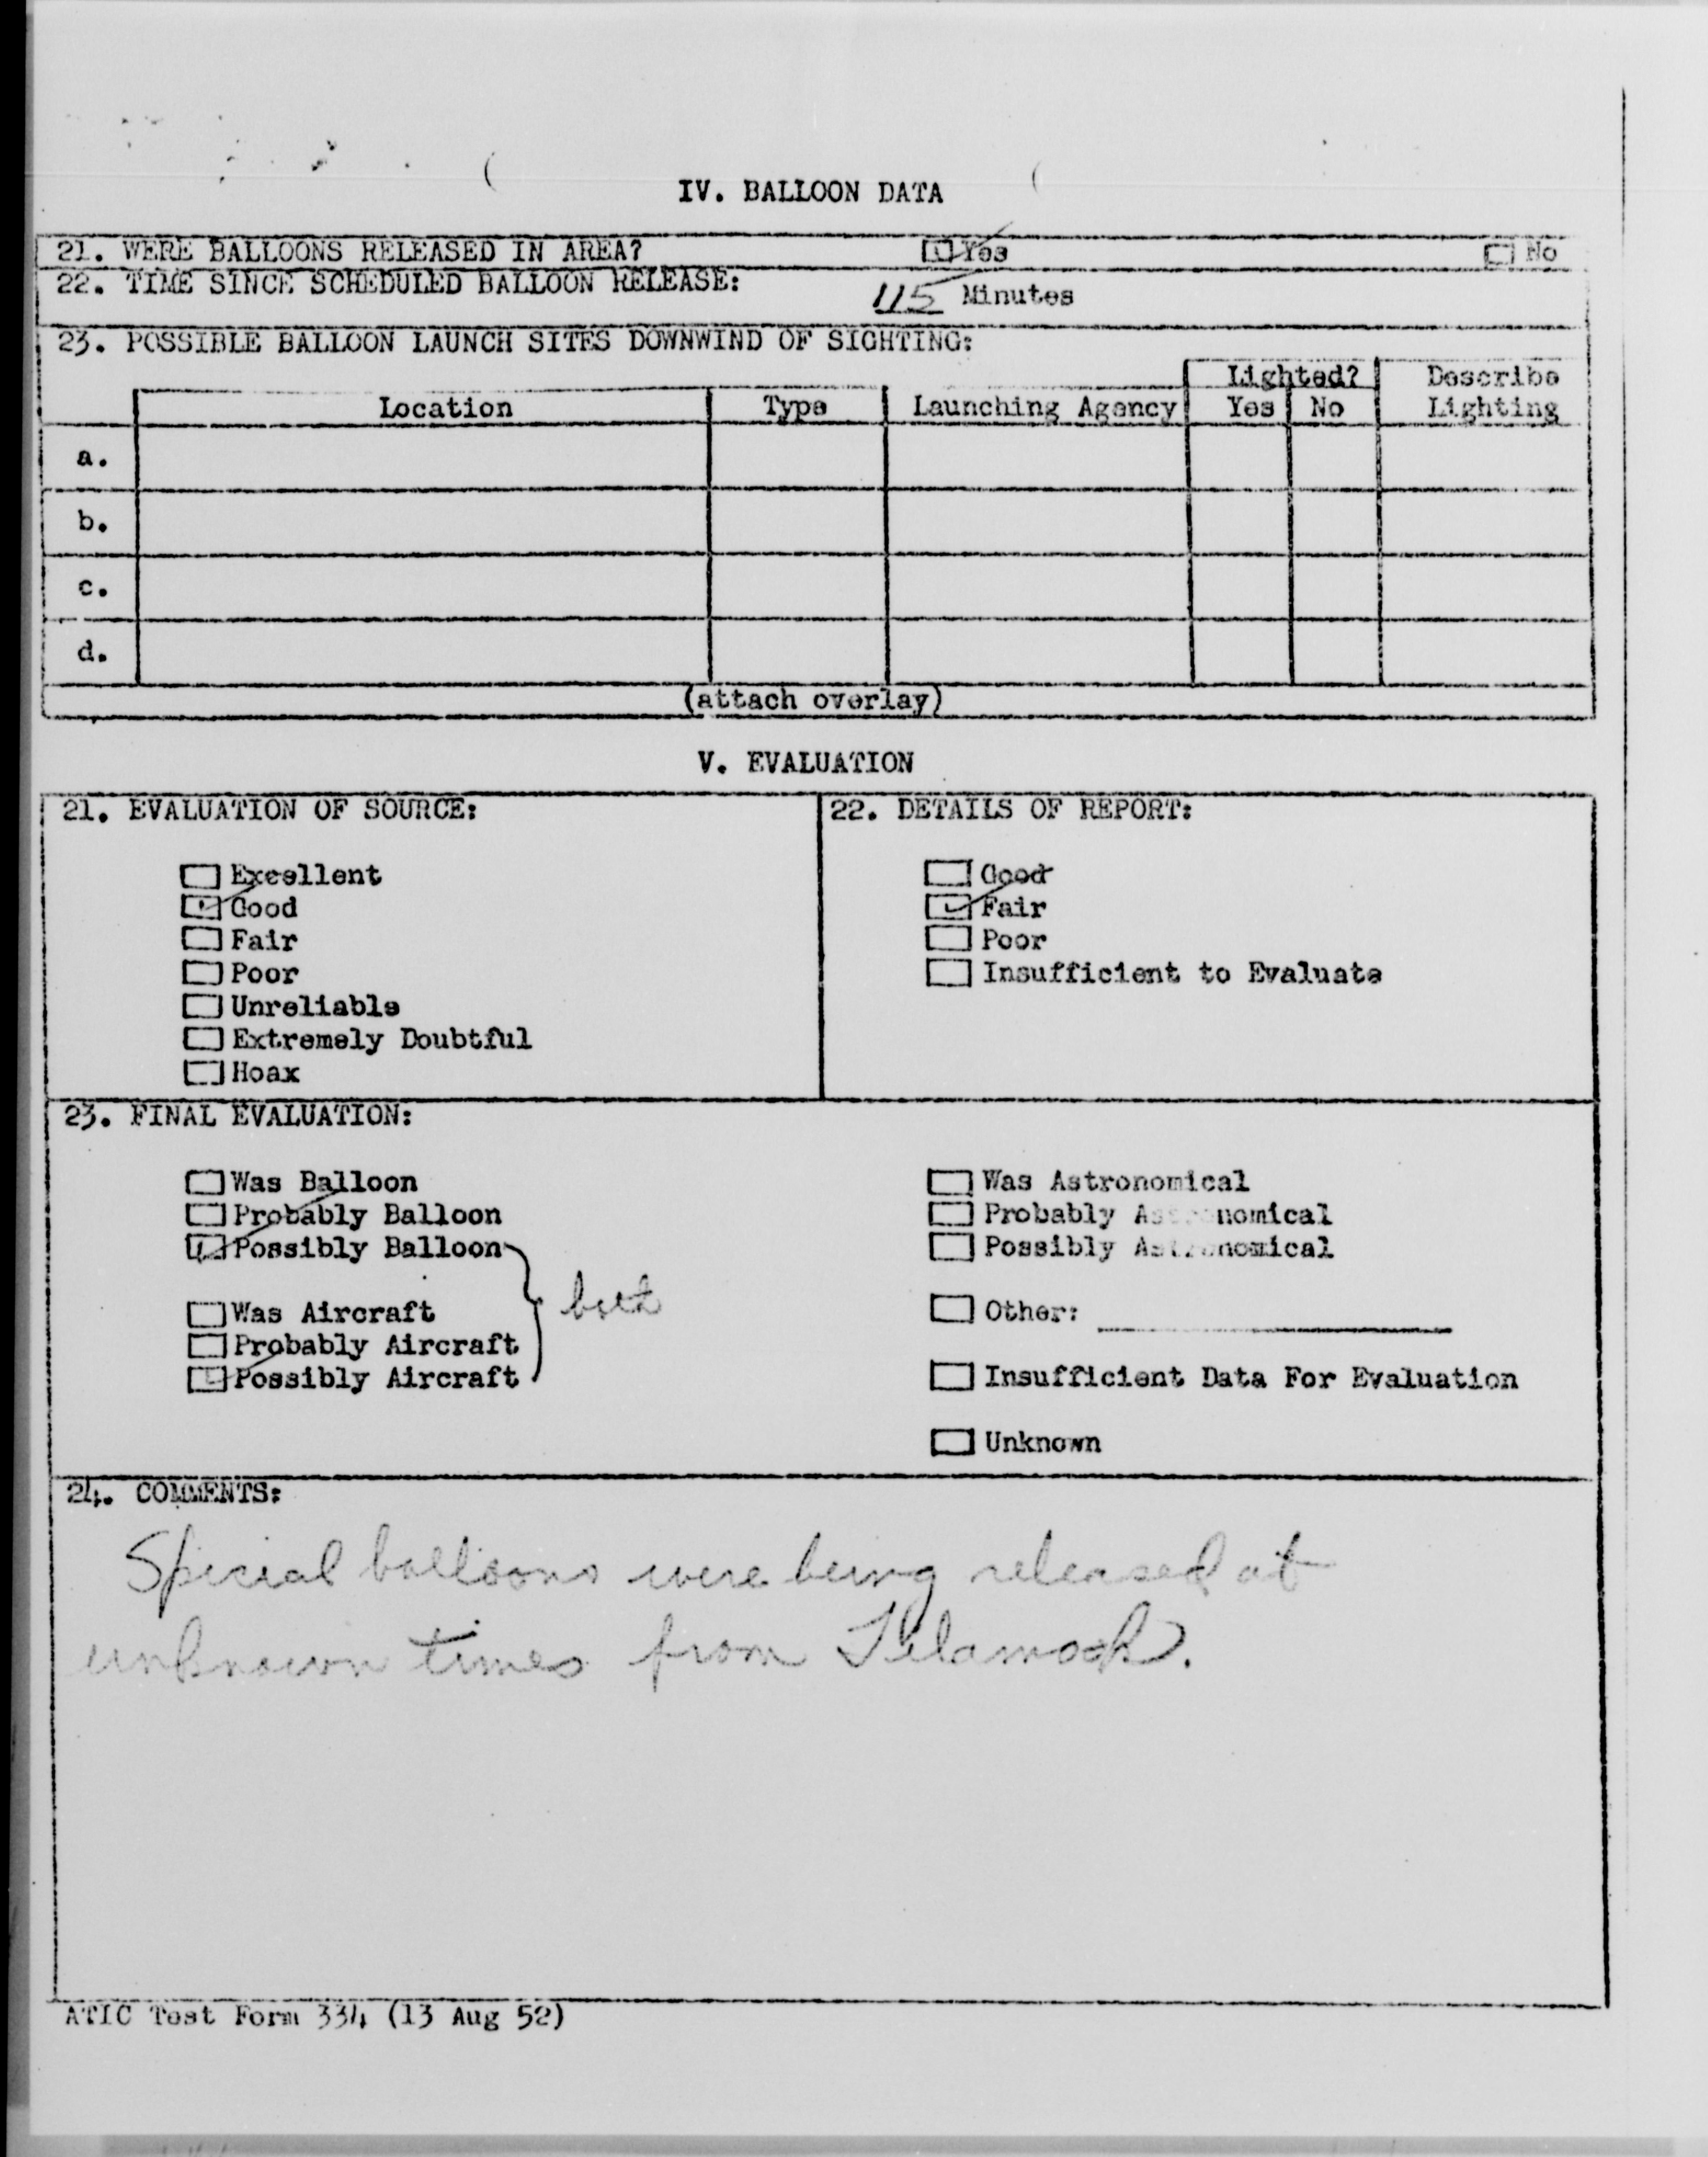 IV. BALLOON DATA
21. WERE BALLOONS RELEASED IN AREA? ☑ Yes ☐ No
22. TIME SINCE SCHEDULED BALLOON RELEASE: 115 Minutes
23. POSSIBLE BALLOON LAUNCH SITES DOWNWIND OF SIGHTING:
Lighted? Describe
Location Type Launching Agency Yes No Lighting
a.
b.
c.
d.
(attach overlay)
V. EVALUATION
21. EVALUATION OF SOURCE: 22. DETAILS OF REPORT:
☐ Excellent ☐ Good
☑ Good ☑ Fair
☐ Fair ☐ Poor
☐ Poor ☐ Insufficient to Evaluate
☐ Unreliable
☐ Extremely Doubtful
☐ Hoax
23. FINAL EVALUATION:
☐ Was Balloon ☐ Was Astronomical
☐ Probably Balloon ☐ Probably Astronomical
☑ Possibly Balloon ☐ Possibly Astronomical
☐ Was Aircraft ☐ Other:
☐ Probably Aircraft
☑ Possibly Aircraft ☐ Insufficient Data For Evaluation
☐ Unknown
24. COMMENTS:
Special balloons were being released at
unknown times from
ATIC Test Form 334 (13 Aug 52)